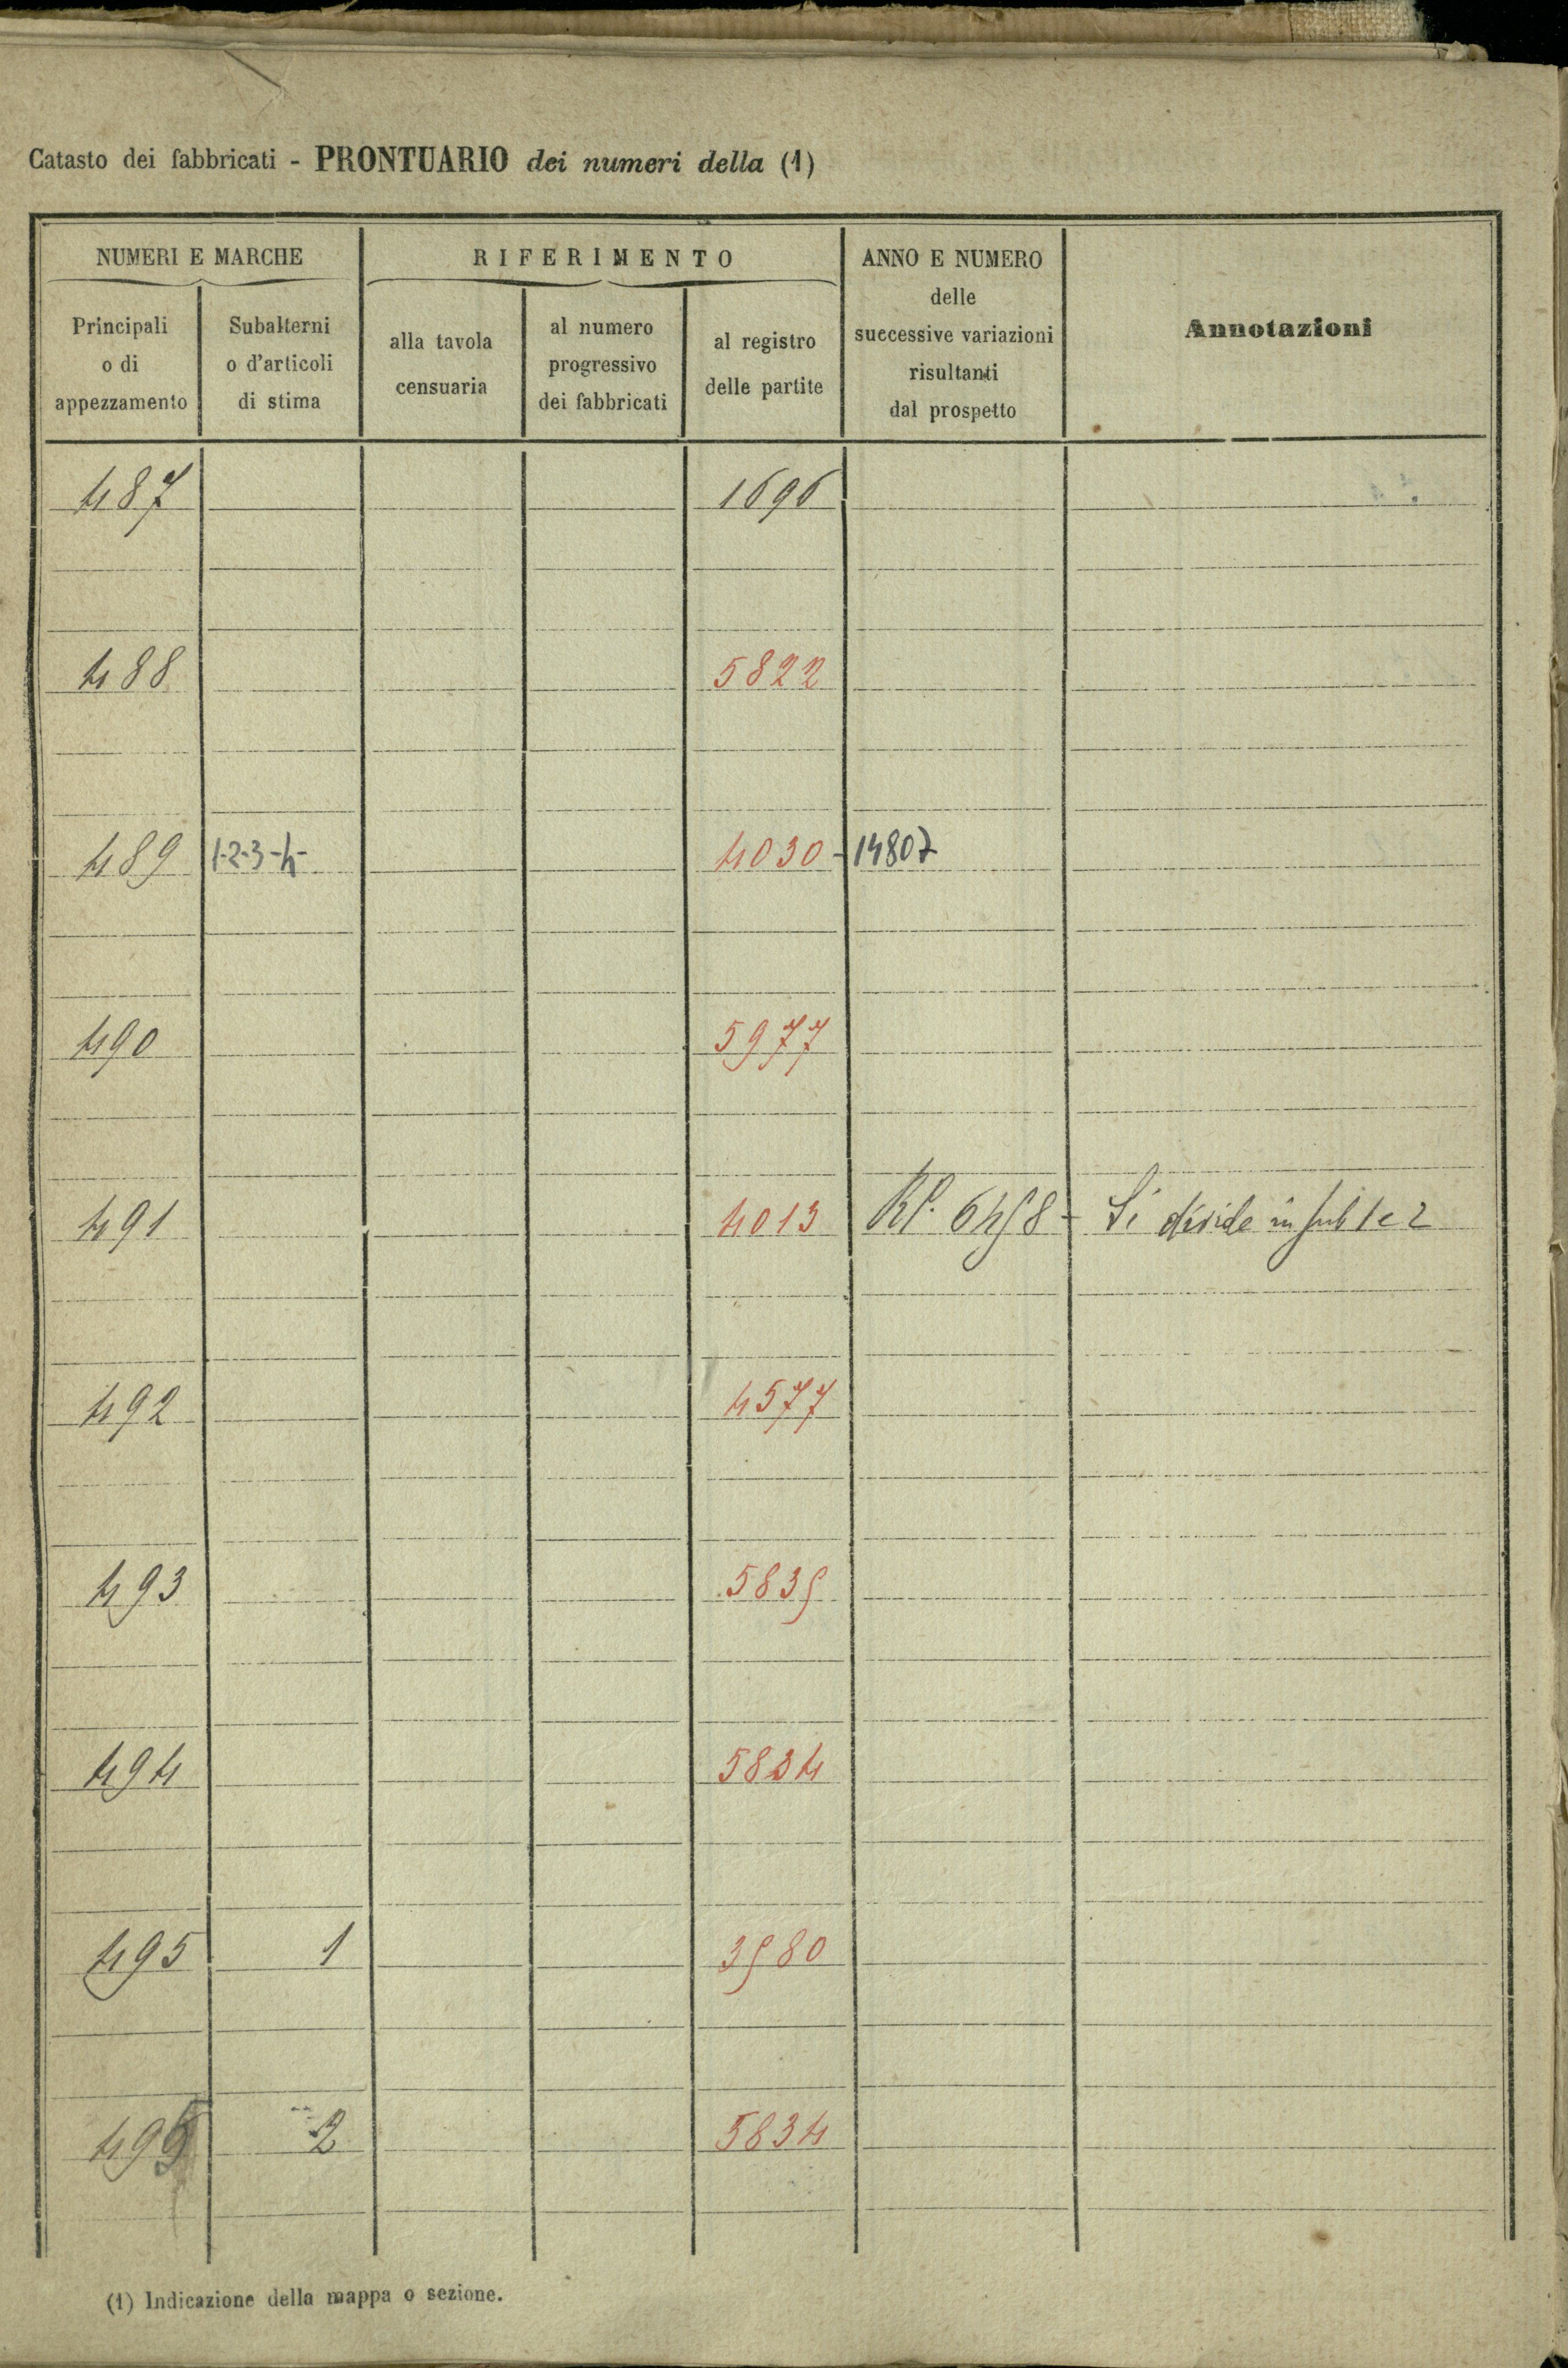 Catasto dei fabbricati - PRONTUARIO dei numeri della (1)
NUMERI E MARCHE
RIFERIMENTO
ANNO E NUMERO
delle
successive variazioni
risultanti
dal prospetto
Annotazioni
Principali
o di
appezzamento
Subalterni
o d'articoli
di stima
alla tavola
censuaria
al numero
progressivo
dei fabbricati
al registro
delle partite
487 1696
488 5822
489 1-2-3-4- 4030 - 14807
490 5977
491 4013 RP. 6458 - Si divide in sub 1 e 2
492 4577
493 5835
494 5834
495 1 3580
495 2 5834
(1) Indicazione della mappa o sezione.